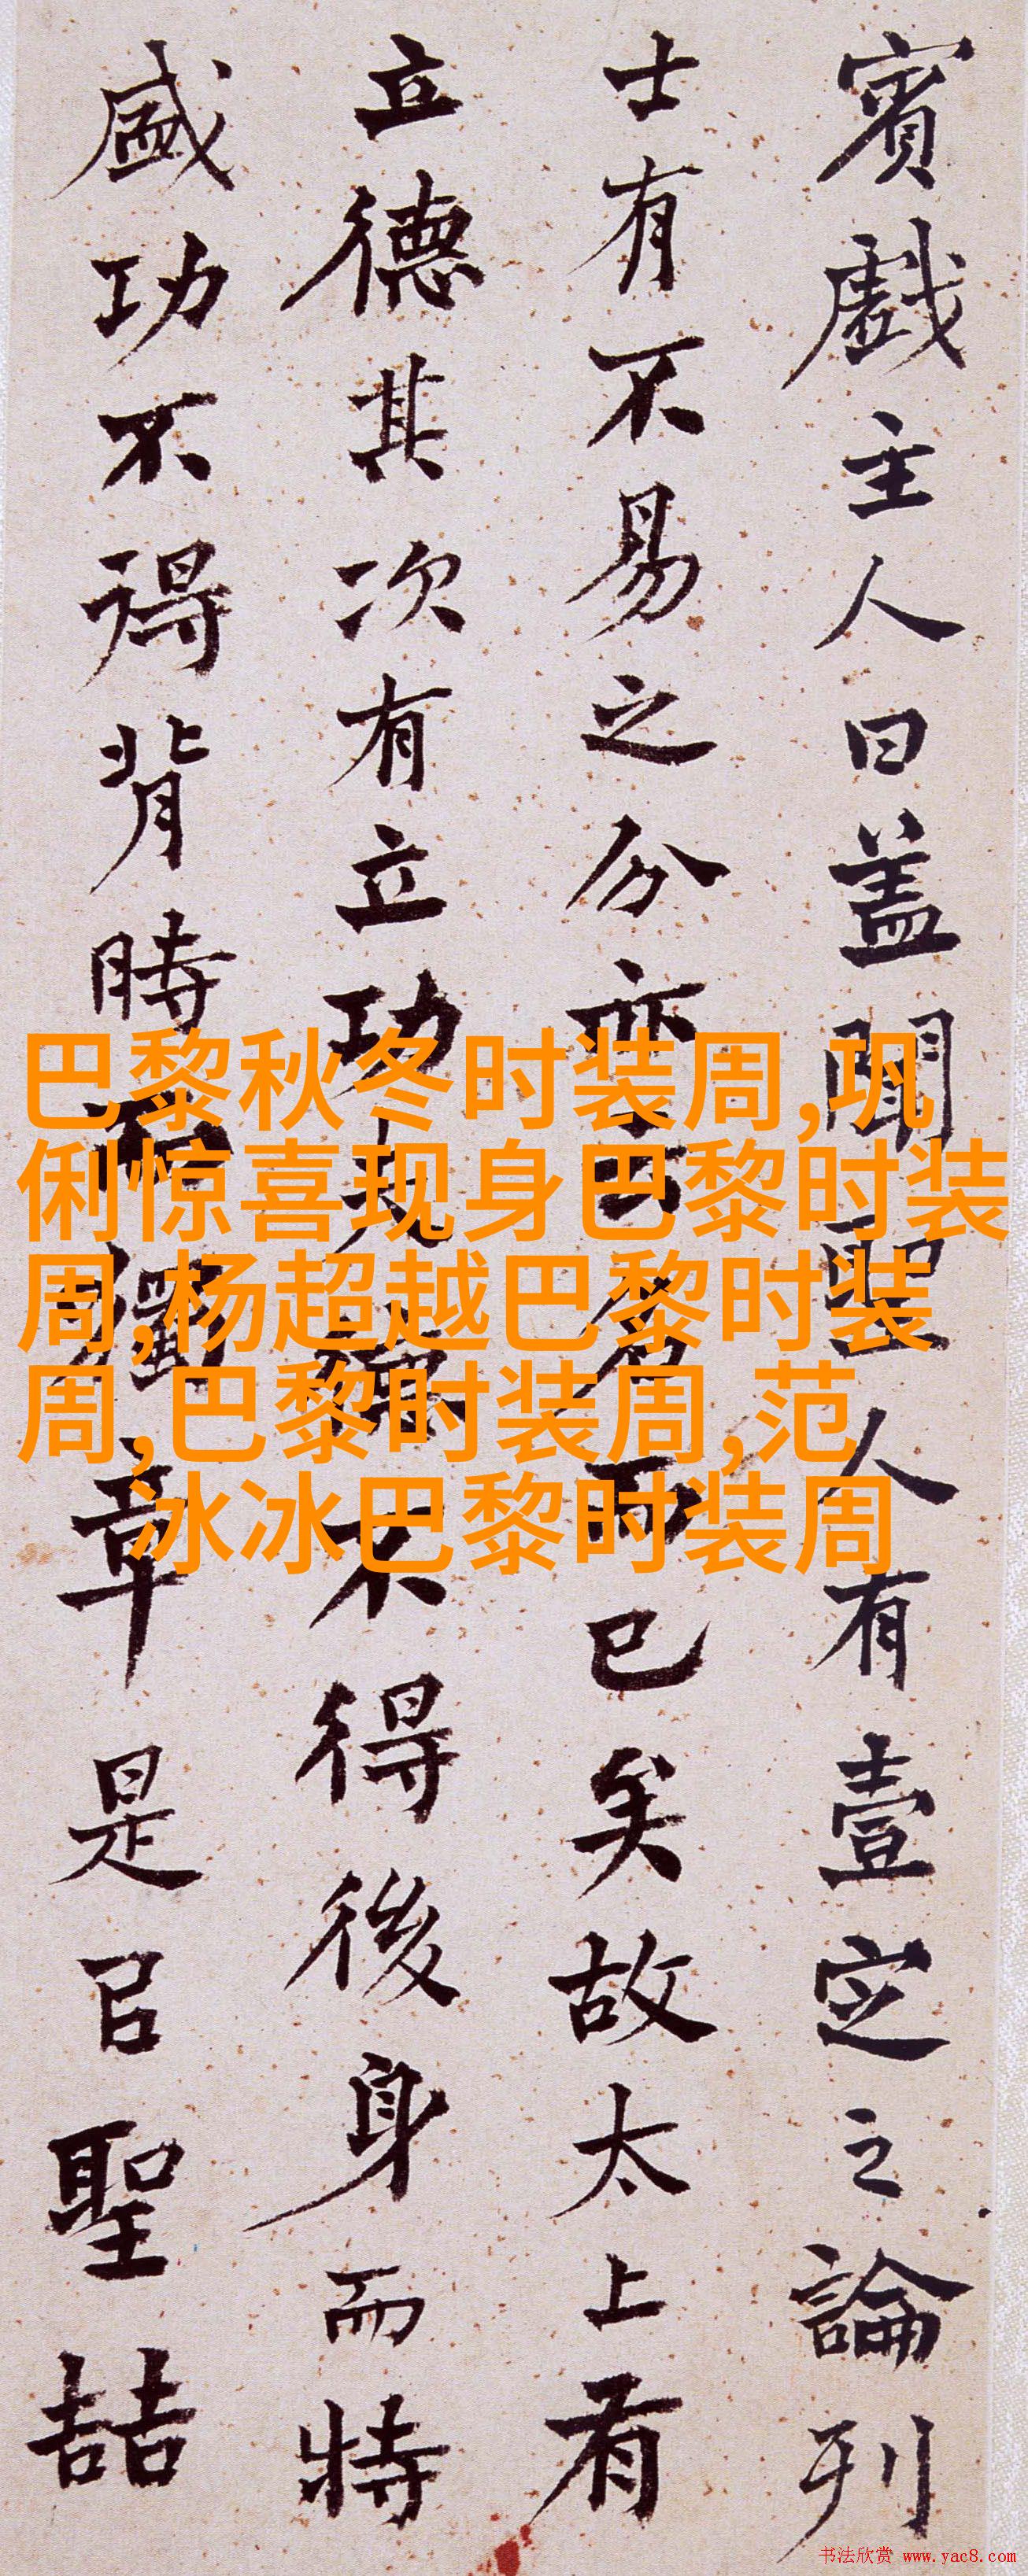 賓戲主人曰盖聞聖人有壹定之論列
士有不易之分亦云名而已矣故太上有
立德其次有立功夫德不得後身而特
盛功不得背時而獨章是㠯聖喆
巴黎秋冬时装周,巩
俐惊喜现身巴黎时装
周,杨超越巴黎时装
周,巴黎时装周,范
冰冰巴黎时装周
书法欣赏 www.yac8.com